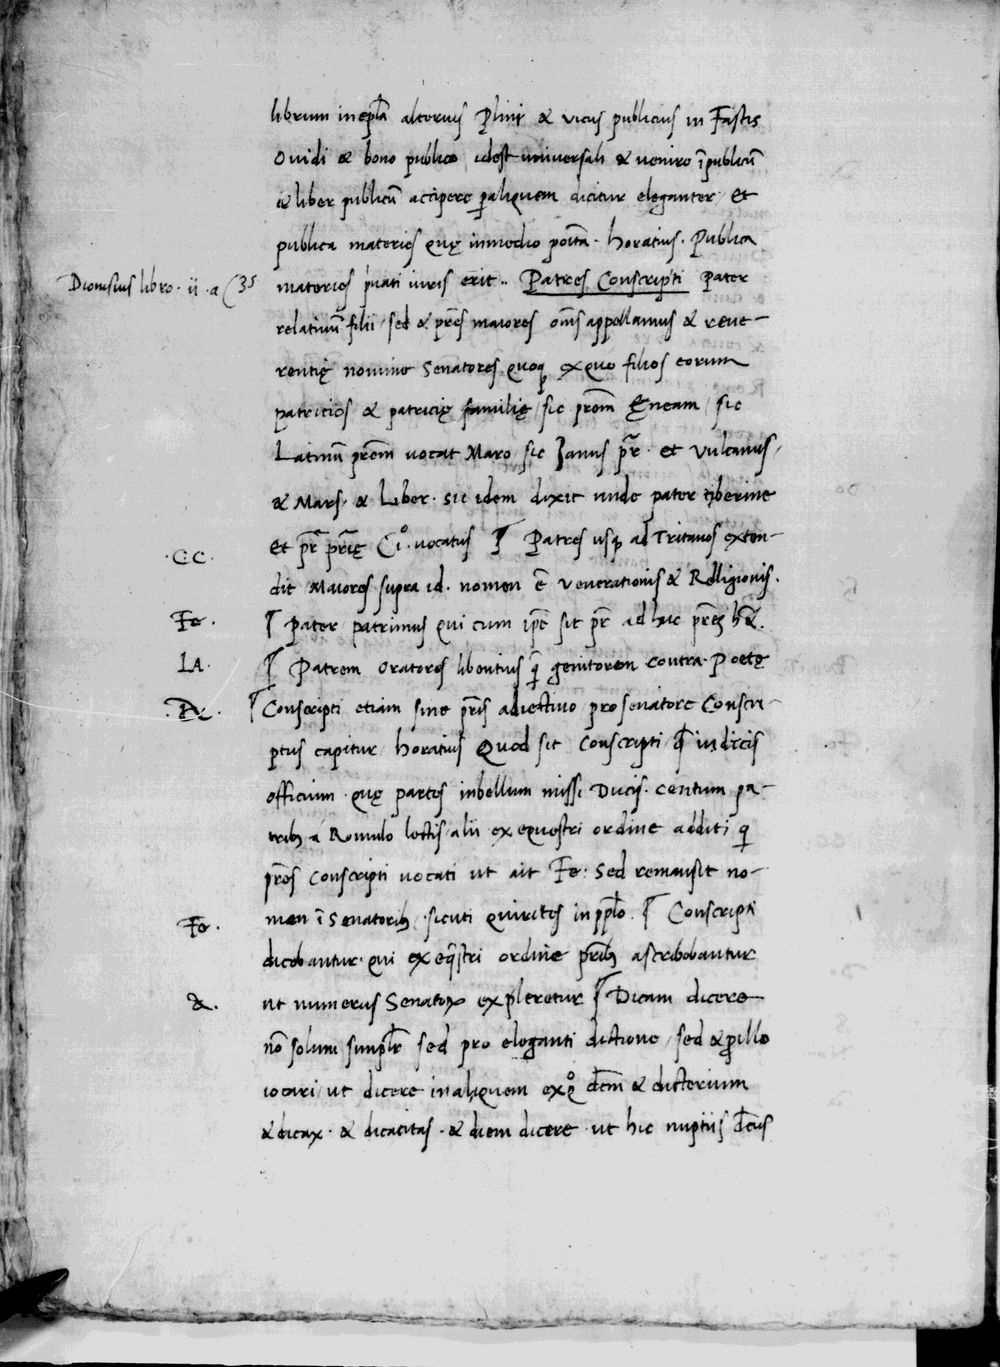 librum in epl̃a alterius Plinii & vicus publicius in Fastis
Ovidi & bono publico idest universali & venire ĩ publicũ
& liber publicũ accipere p aliquem dicitur eleganter Et
publica materies quę inmedio posita · horatius · Publica
Dionisius libro · ii · a (35
materies privati iuris erit ·· Patres Conscripti Pater
relativũ filii / sed & pr̃es maiores om̃s appellamus & reve-
rentię nomine Senatores quoq ex quo filios eorum
patricios & patricię familię / sic prem̃ Ęneam / sic
Latinũ prem̃ vocat Maro / sic Janus pr̃ · et Vulcanus /
& Mars · & Liber · sic idem dixit unde pater tyberine
Et pr̃ pr̃ię Ci° · vocatus ¶ Patres usq ad Tritavos exten-
· C C ·
dit Maiores supra id · nomen ẽ Venerationis & Religionis ·
Fe ·
¶ Pater patrimus qui cum ip̃e sit pr̃ adhuc prẽȝ hẽt ·
LA ·
¶ Patrem oratores libentius q̃ genitorem contra Poetę
· A ·
¶ Conscripti etiam sine pr̃is adiectivo pro senatore Conscri-
ptus capitur / horatius Quod sit Conscripti q̃ iudicis
officium · quę partes inbellum missi Ducis · centum pa-
tribȝ a Romulo lectis alii ex equestri ordine additi q
pr̃es Conscripti vocati ut ait Fe : Sed remansit no-
men ĩ Senatoribȝ · sicuti quirites in pplo · ¶ Conscripti
Fe ·
dicebantur · qui ex eq̃stri ordine pr̃ibȝ ascribebantur
& ·
ut numerus Senatoꝝ expleretur ¶ Dicam dicere
nõ solum simplr̃ sed pro eleganti dictione / sed & p illo
iocari / ut dicere in aliquem ex q° dc̃m & dicterium
& dicax · & dicacitas · & diem dicere · ut hic nuptiis dc̃us